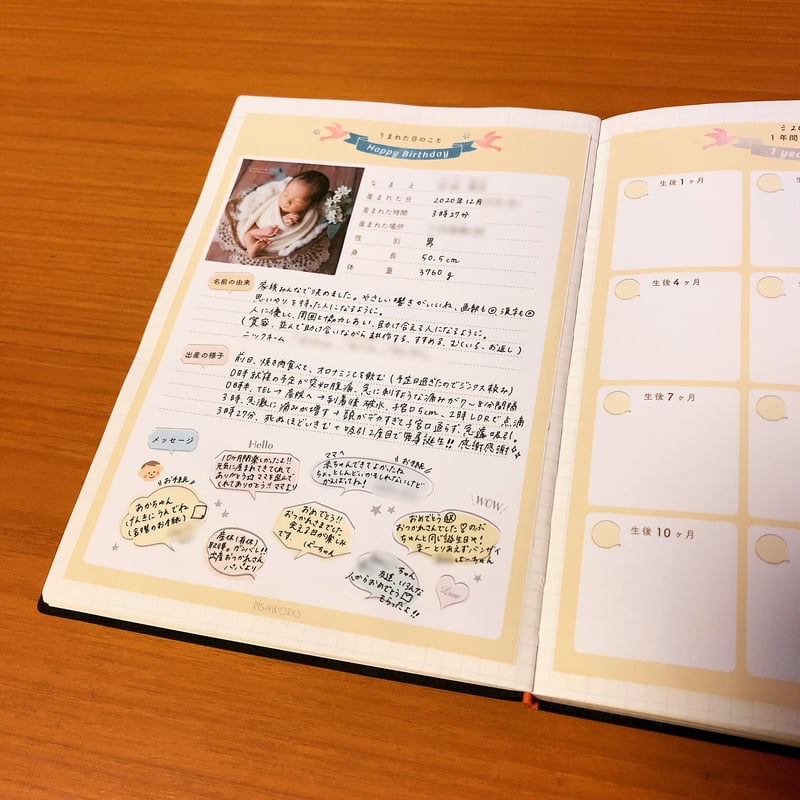 うまれた日のこと
Happy Birthday
なまえ
産まれた日 2020年12月
産まれた時間 3時27分
産まれた場所
性別 男
身長 50.5cm
体重 3760g
名前の由来
家族みんなで決めました。やさしい響きがいいね、画数も◎漢字も◎
思いやりを持った人になるように。
人に優しく、周囲と協力しあい、助け合える人になるように。
(寛容、並んで助け合いながら耕作する、すすめる、むくいる、お返し)
ニックネーム
出産の様子
前日、焼き肉食べて、オロナミンCを飲む(予定日過ぎたのでジンクス頼み)
0時就寝の予定が突如腹痛、急に刺すような痛みが7〜8分間隔
0時半、TEL→産院へ→到着後破水、子宮口5cm、2時LDRで点滴
3時、急激に痛みが増す→頭がデカすぎて子宮口通らず、急遽吸引。
3時27分、死ぬほどいきむ+吸引2度目で無事誕生!!感謝感謝
メッセージ
Hello
10ヶ月間楽しかったよ!!
元気に産まれてきてくれて
ありがとう☆ママを選んで
くれてありがとう!!ママより
ママへ
お手紙
赤ちゃんできてよかったね
ちょっとしんどいかもしれないけど
がんばってね!
お手紙
あかちゃん
げんきにうんでね
WOW
産休(有休)
取得。ガンバレ!!
出産おつかれさん
パパより
おめでとう!!
おつかれさまでした
会える日が楽しみ
です。
ばーちゃん
おめでとう
おつかれさんでした♡
ちゃんと同じ誕生日や!
まーとりあえずバンザイ
ばーちゃん
ちゃん
友達、いろんな
人からおめでとう
もらったよ!!
Love
RISAWORKS
1年間
1 yea
生後1ヶ月
生後4ヶ月
生後7ヶ月
生後10ヶ月